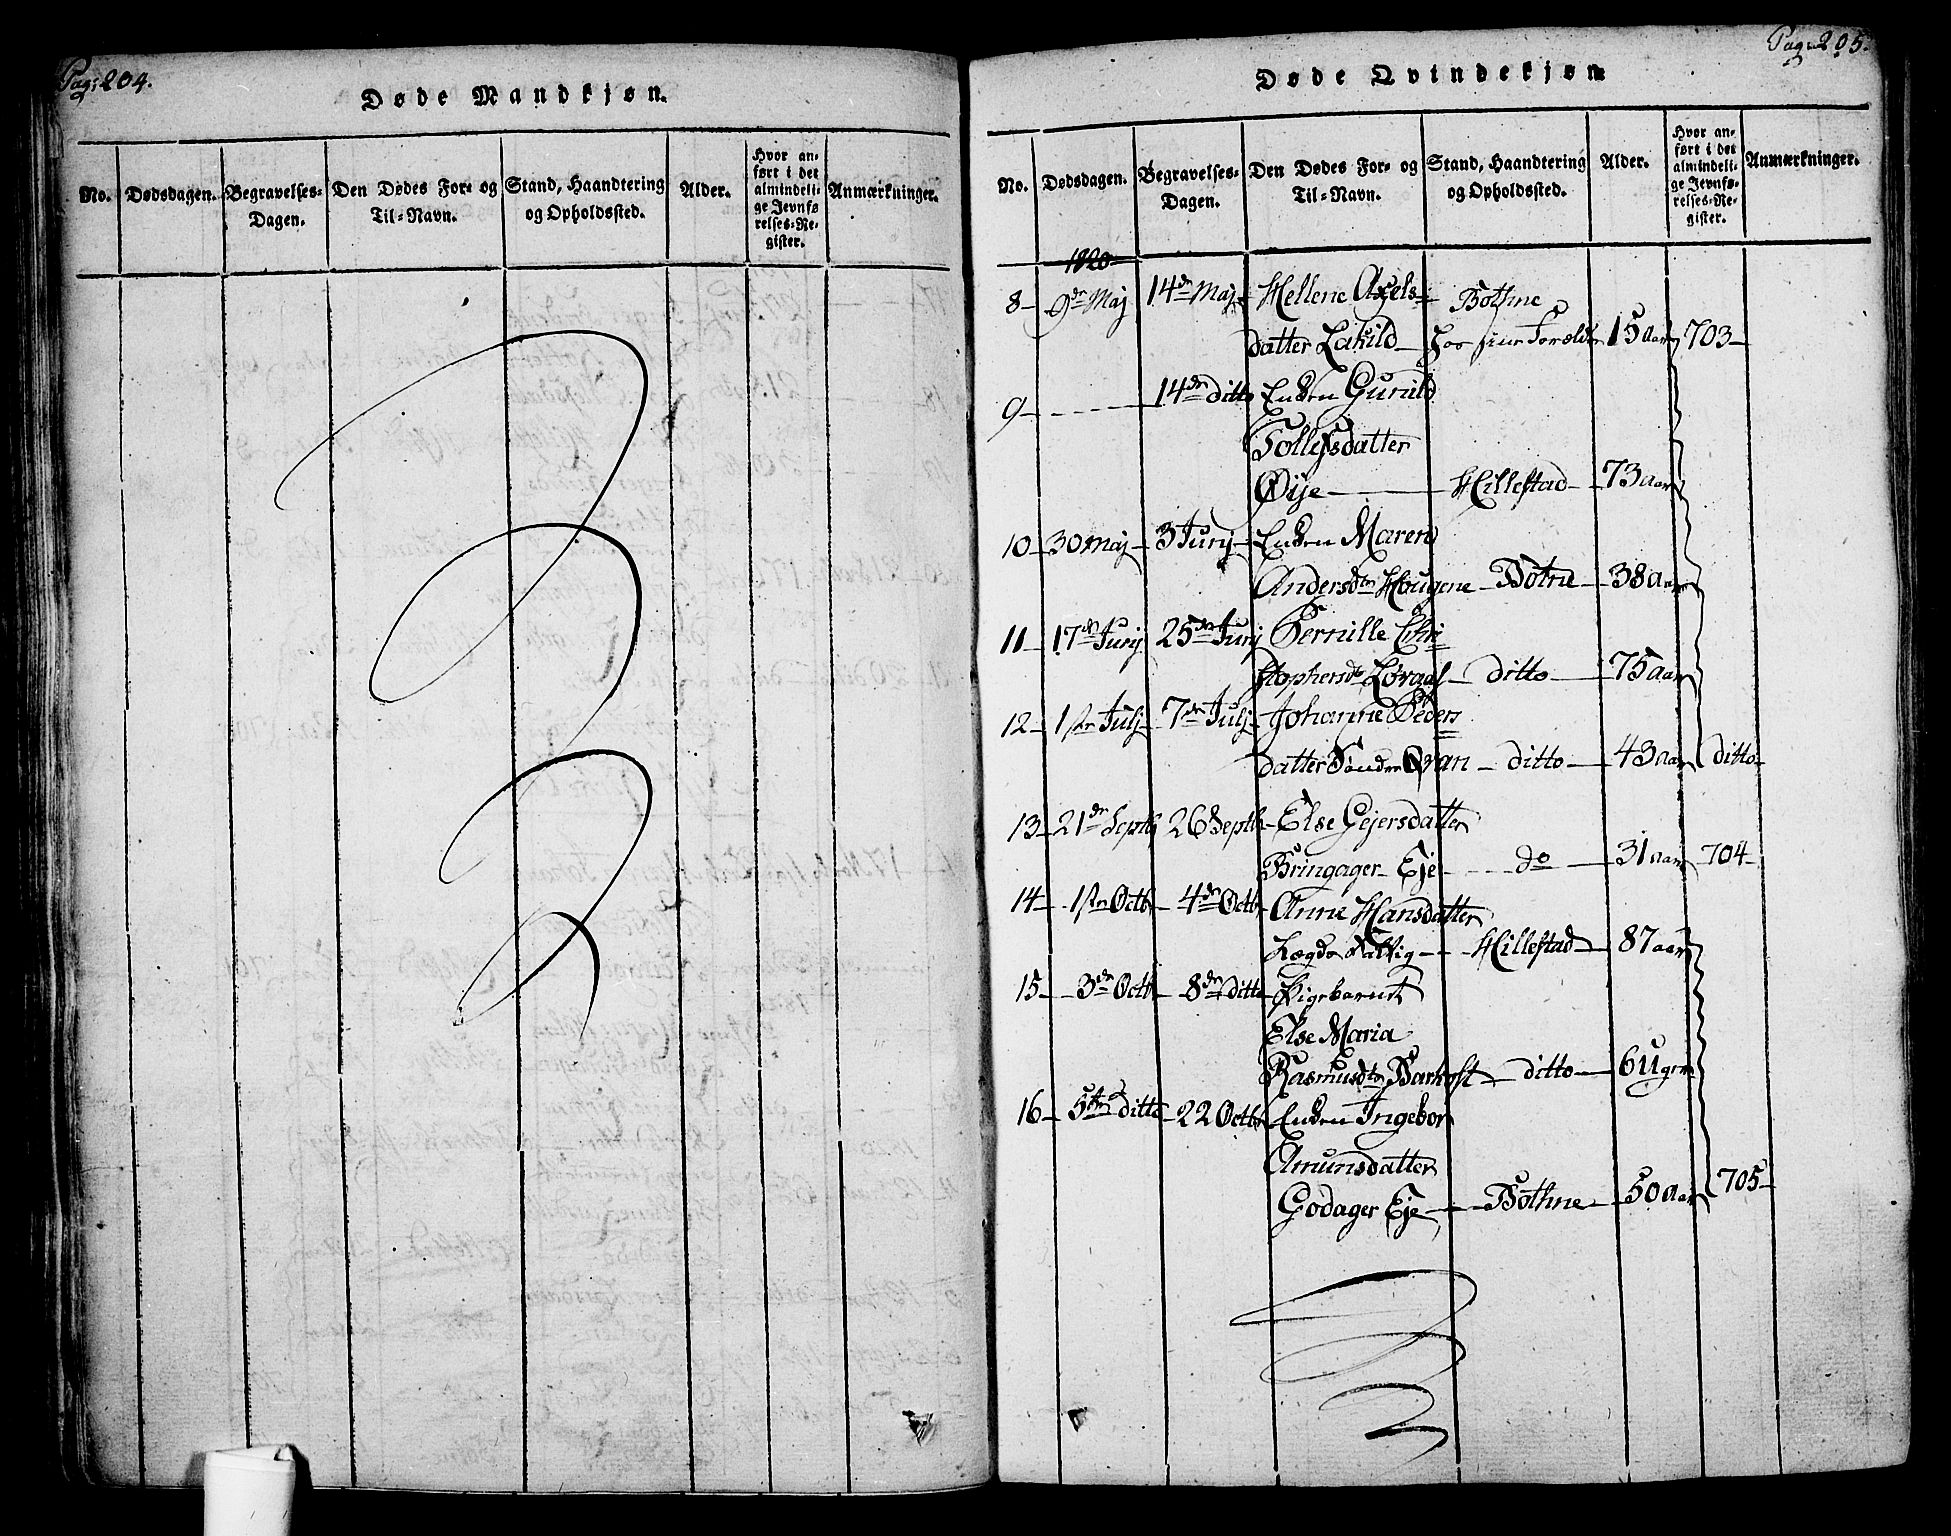 Pag: 204.
Døde Mandkjøn.
No. Dødsdagen. Begravelses-Dagen. Den Dødes For- og Til-Navn. Stand, Haandtering og Opholdssted. Alder. Hvor anført i det almindelige Jevnførelses-Register. Anmærkninger.
Pag: 205.
Døde Qvindekjøn
No. Dødsdagen. Begravelses-Dagen. Den Dødes For- og Til-Navn. Stand, Haandtering og Opholdssted. Alder. Hvor anført i det almindelige Jevnførelses-Register. Anmærkninger.
1820
8 - 9de Maj 14de Maj Hellene Axels- Bothne
datter Lakild - hos sine Forældre 15 Aar 703 -
9 - 14de ditto Enken Gunild
Tollefsdatter
Øije - Hillestad - 73 aar
10 - 30 Maj - 3 Junj - Enken Maren
Andersdtr Hougene - Botne - 38 aar
11 - 17de Junij 25de Junj Pernille Chri=
stophersdr Løraas - ditto - 75 aar
12 - 1ste Julj - 7de Julj - Johanne Peders
datter Sønder Qvan - ditto - 43 aar ditto -
13 - 21de Septb 26 Septb - Else Gejersdatter
Bringager Eje - do - 31 aar 704 -
14 - 1ste Octb - 4de Octb - Anne Hansdatter
Lægds - Hillestad - 87 aar
15 - 3de Octb - 8de ditto - Pigebarnet
Else Maria
Rasmusdtr Barkost - ditto - 6 Uger
16 - 5te ditto - 22 Octbr Enken Ingebor
Amunsdatter
Godager Eje - Bothne - 50 aar 705 -